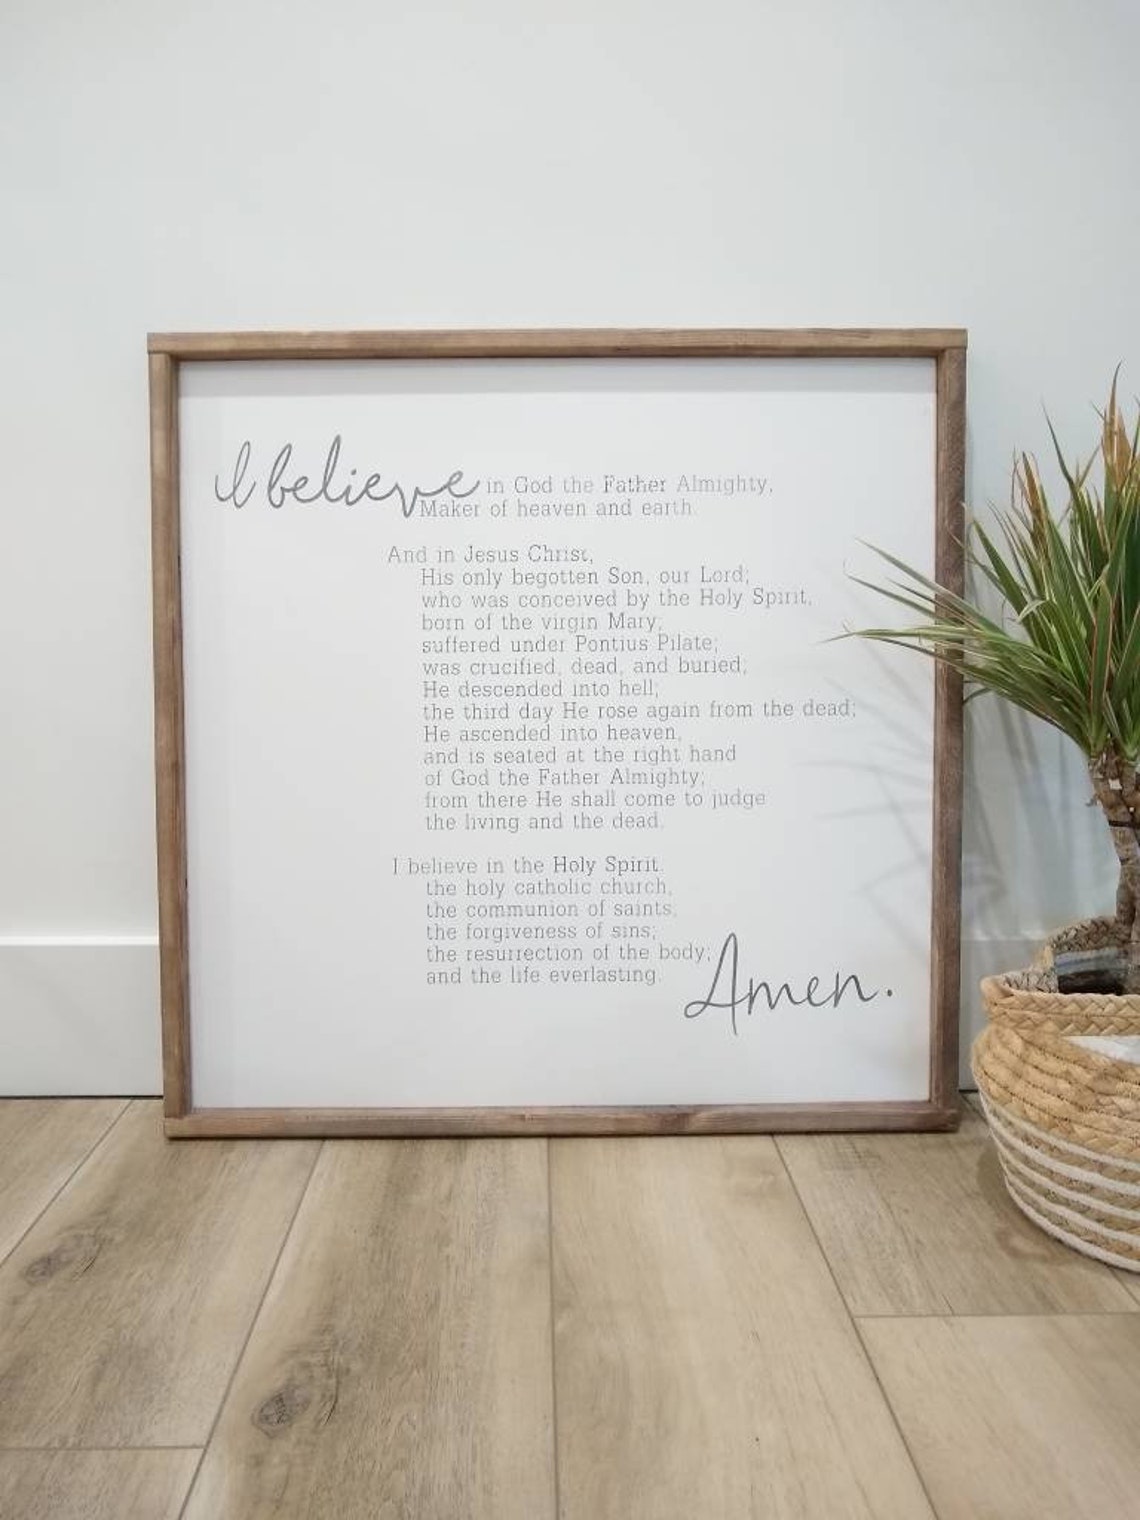 I believe in God the Father Almighty,
Maker of heaven and earth.
And in Jesus Christ,
His only begotten Son, our Lord;
who was conceived by the Holy Spirit,
born of the virgin Mary;
suffered under Pontius Pilate;
was crucified, dead, and buried;
He descended into hell;
the third day He rose again from the dead;
He ascended into heaven,
and is seated at the right hand
of God the Father Almighty;
from there He shall come to judge
the living and the dead.
I believe in the Holy Spirit.
the holy catholic church,
the communion of saints,
the forgiveness of sins;
the resurrection of the body;
and the life everlasting.
Amen.